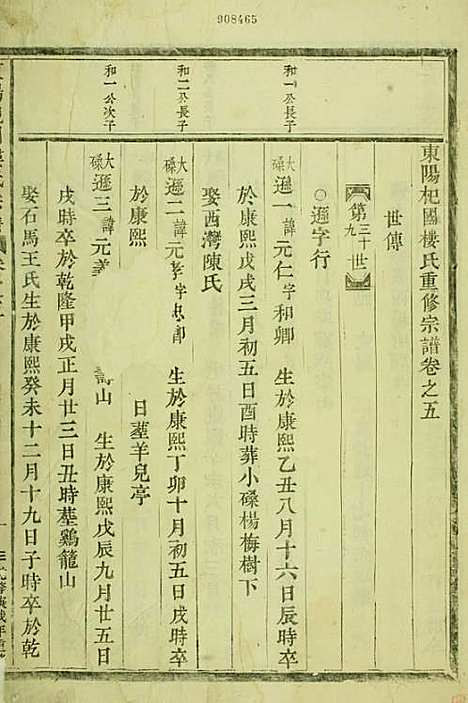 908465
東陽杞國樓氏重修宗譜卷之五
世傳
第三十九世
○遜字行
和一公長子
大磉遜一諱元仁字和卿 生於康熙乙丑八月十六日辰時卒
於康熙戊戌三月初五日酉時葬小磉楊梅樹下
娶西灣陳氏
和二公長子
大磉遜二諱元孝字 生於康熙丁卯十月初五日戌時卒
於康熙 日塟羊兒亭
和一公次子
大磉遜三諱元 壽山 生於康熙戊辰九月廿五日
戌時卒於乾隆甲戌正月廿三日丑時塟鷄籠山
娶石馬王氏生於康熙癸未十二月十九日子時卒於乾